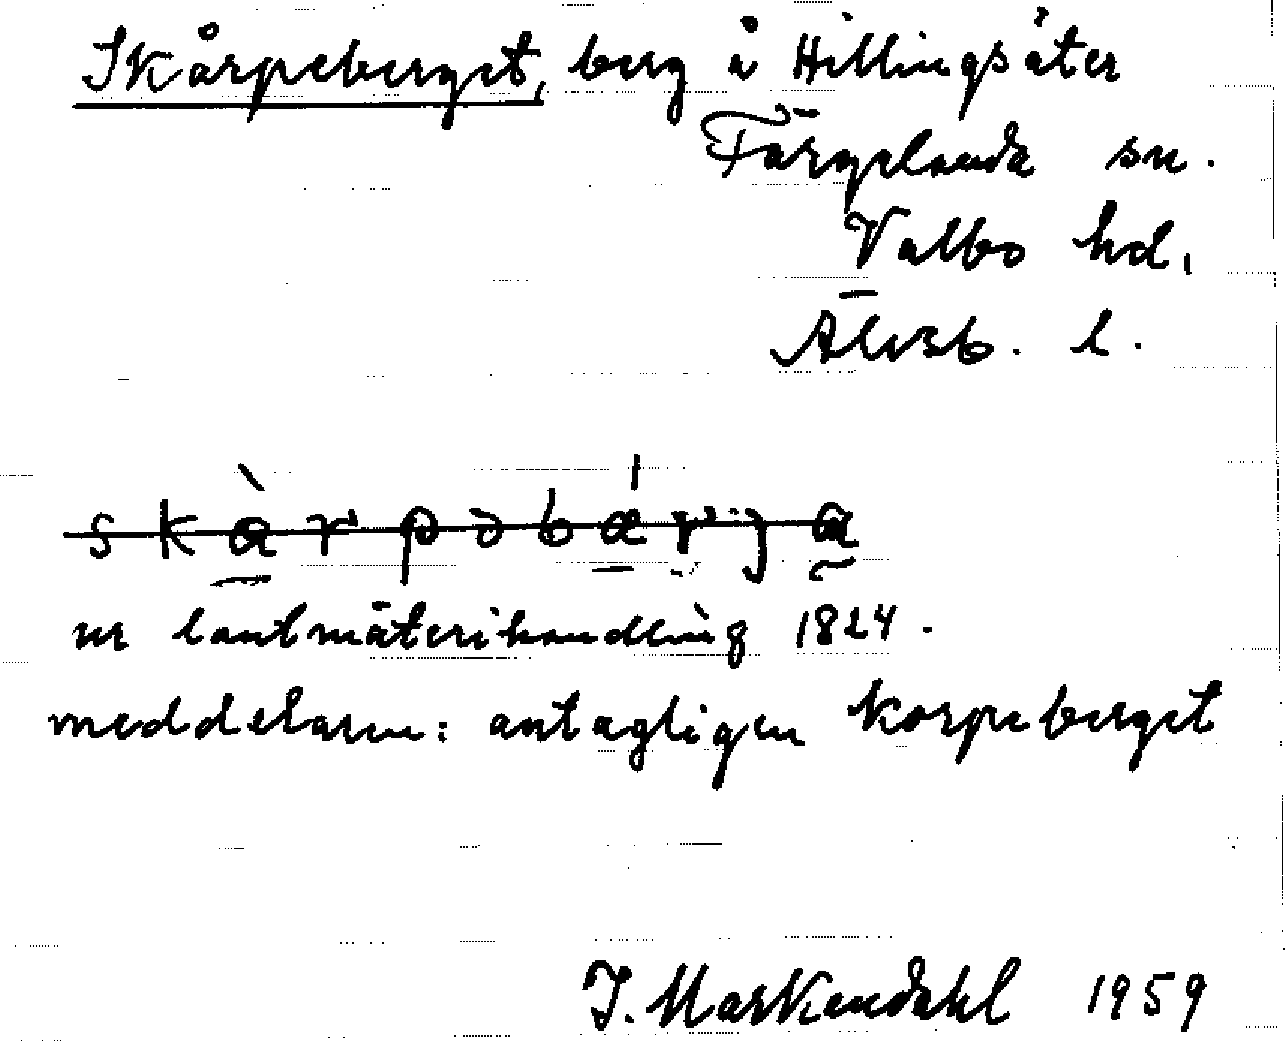 Skårpeberget, berg å Hillingsäter
Färgelanda sn.
Valbo hd.
Älvsb. l.
ur lantmäterihandling 1824.
meddelaren: antagligen korpeberget
I. Markendahl 1959